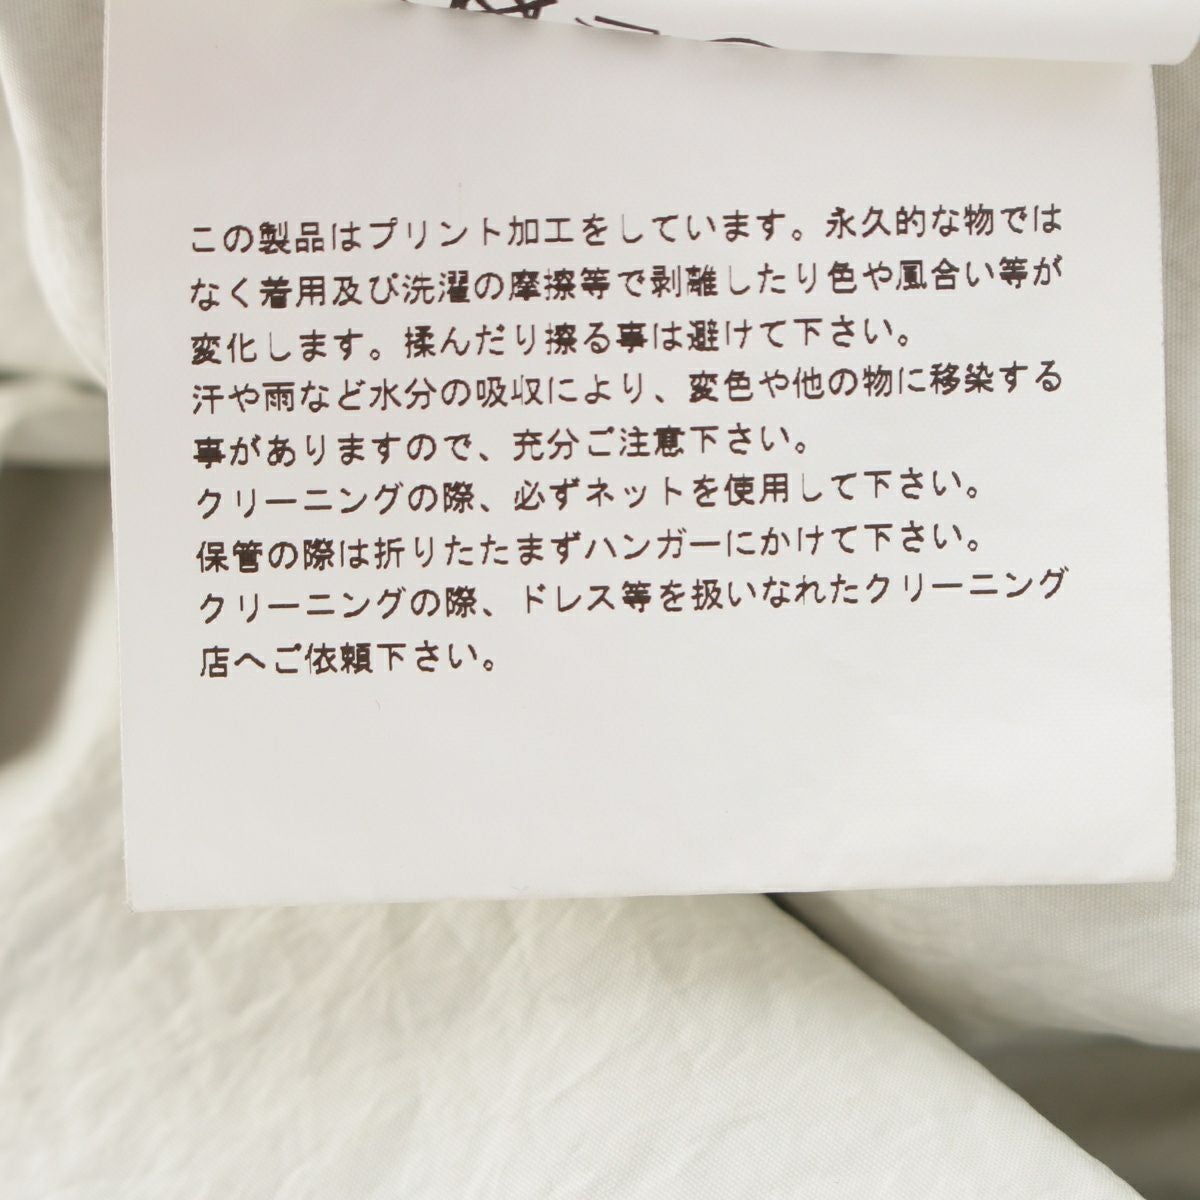 この製品はプリント加工をしています。永久的な物では
なく着用及び洗濯の摩擦等で剥離したり色や風合い等が
変化します。揉んだり擦る事は避けて下さい。
汗や雨など水分の吸収により、変色や他の物に移染する
事がありますので、充分ご注意下さい。
クリーニングの際、必ずネットを使用して下さい。
保管の際は折りたたまずハンガーにかけて下さい。
クリーニングの際、ドレス等を扱いなれたクリーニング
店へご依頼下さい。